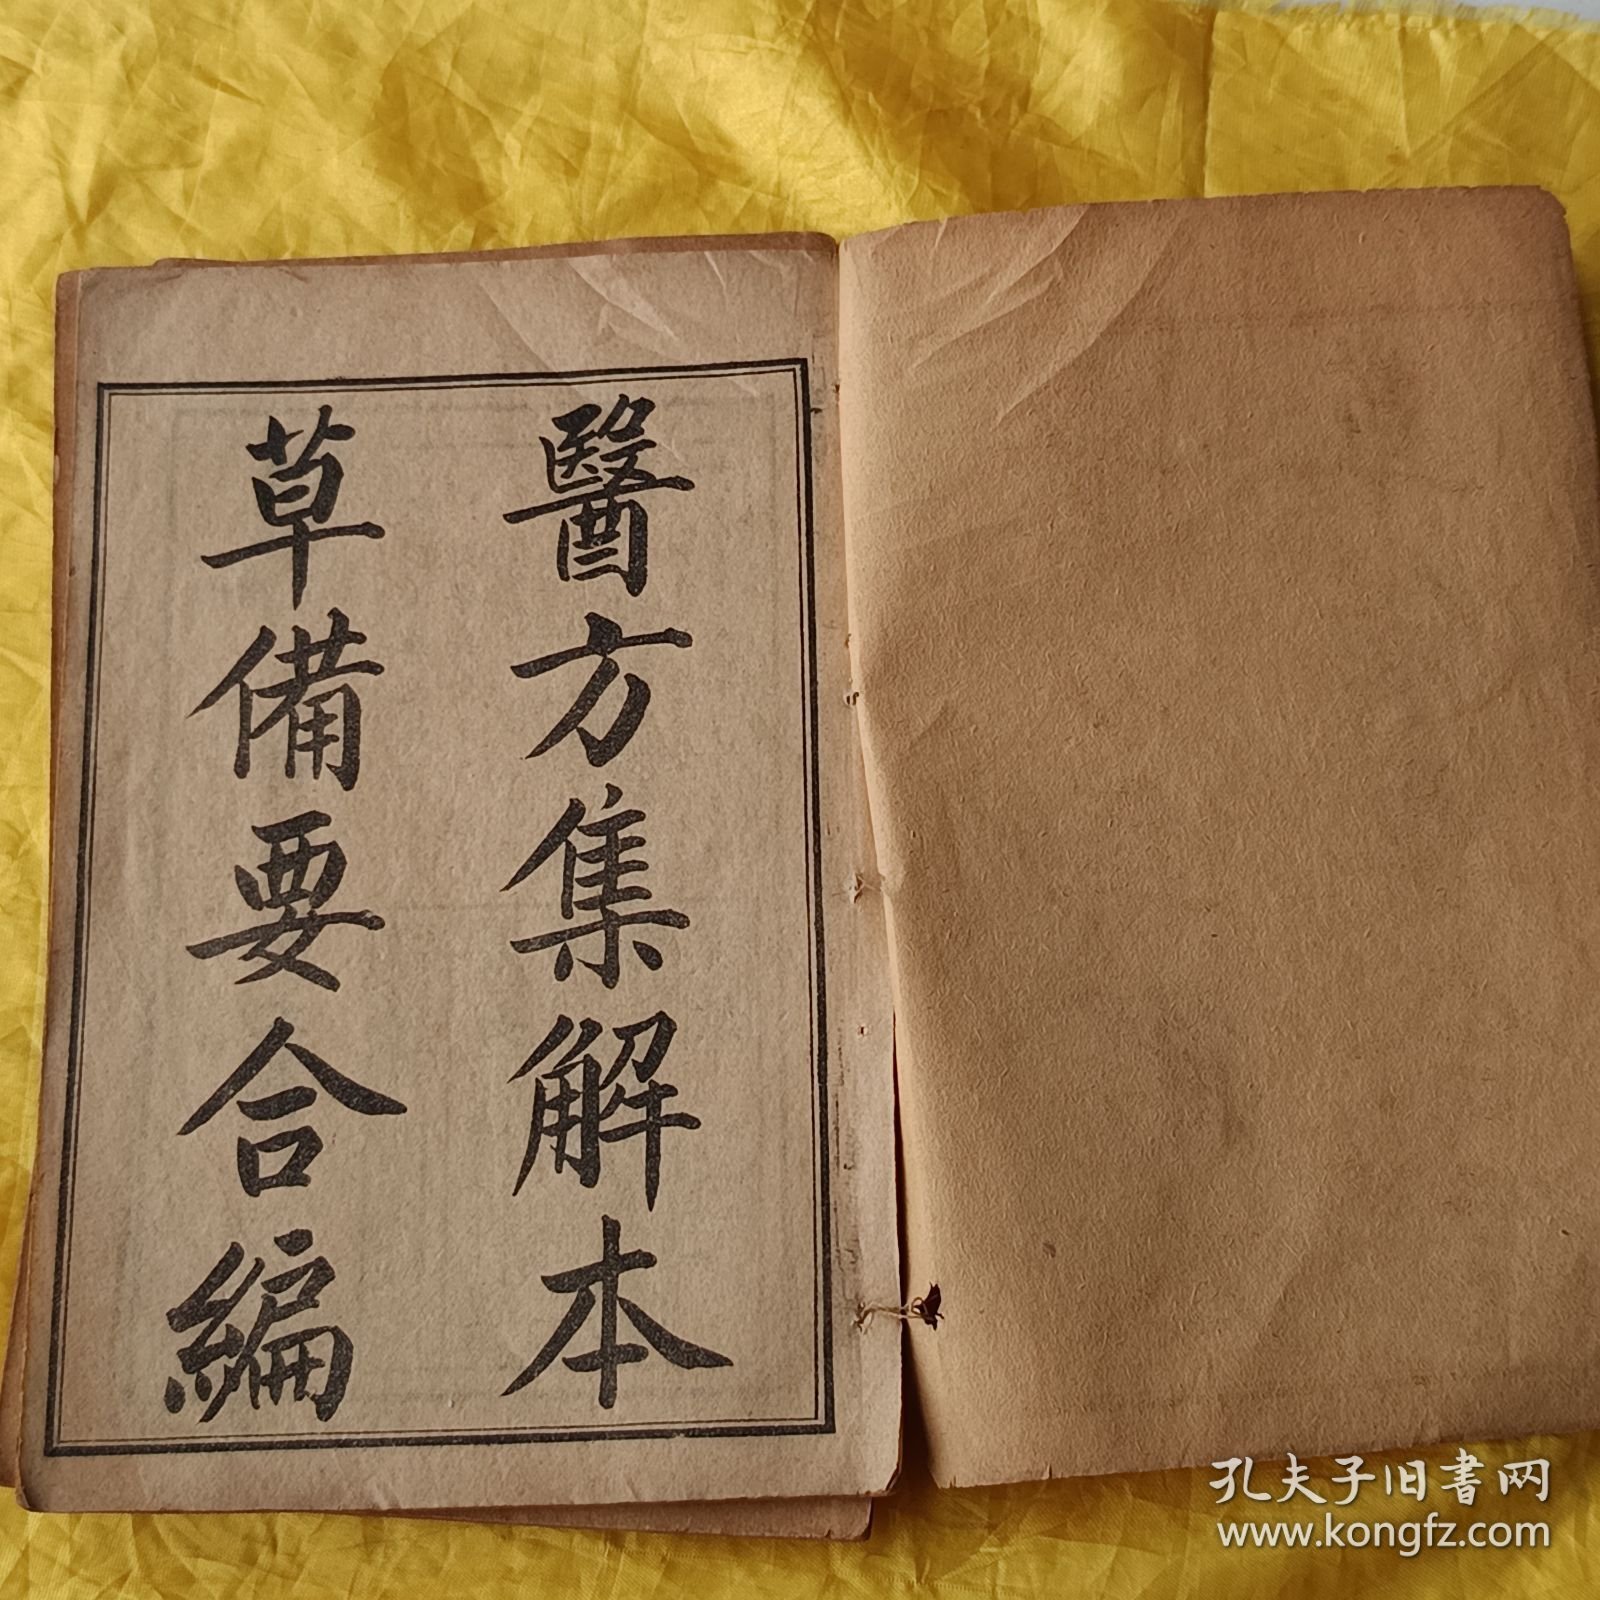 醫方集解本
草備要合編
孔夫子旧书网
www.kongfz.com